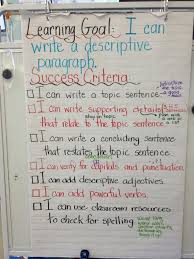 Learning Goal: I can
write a descriptive
paragraph.
Success Criteria
I can write a topic sentence
I can write supporting details/sentences
stay on topic
that relate to the topic sentence
I can write a concluding sentence
that restates the topic sentence
I can verify for capitals and punctuation
I can add descriptive adjectives.
I can add powerful verbs.
I can use classroom resources
to check for spelling